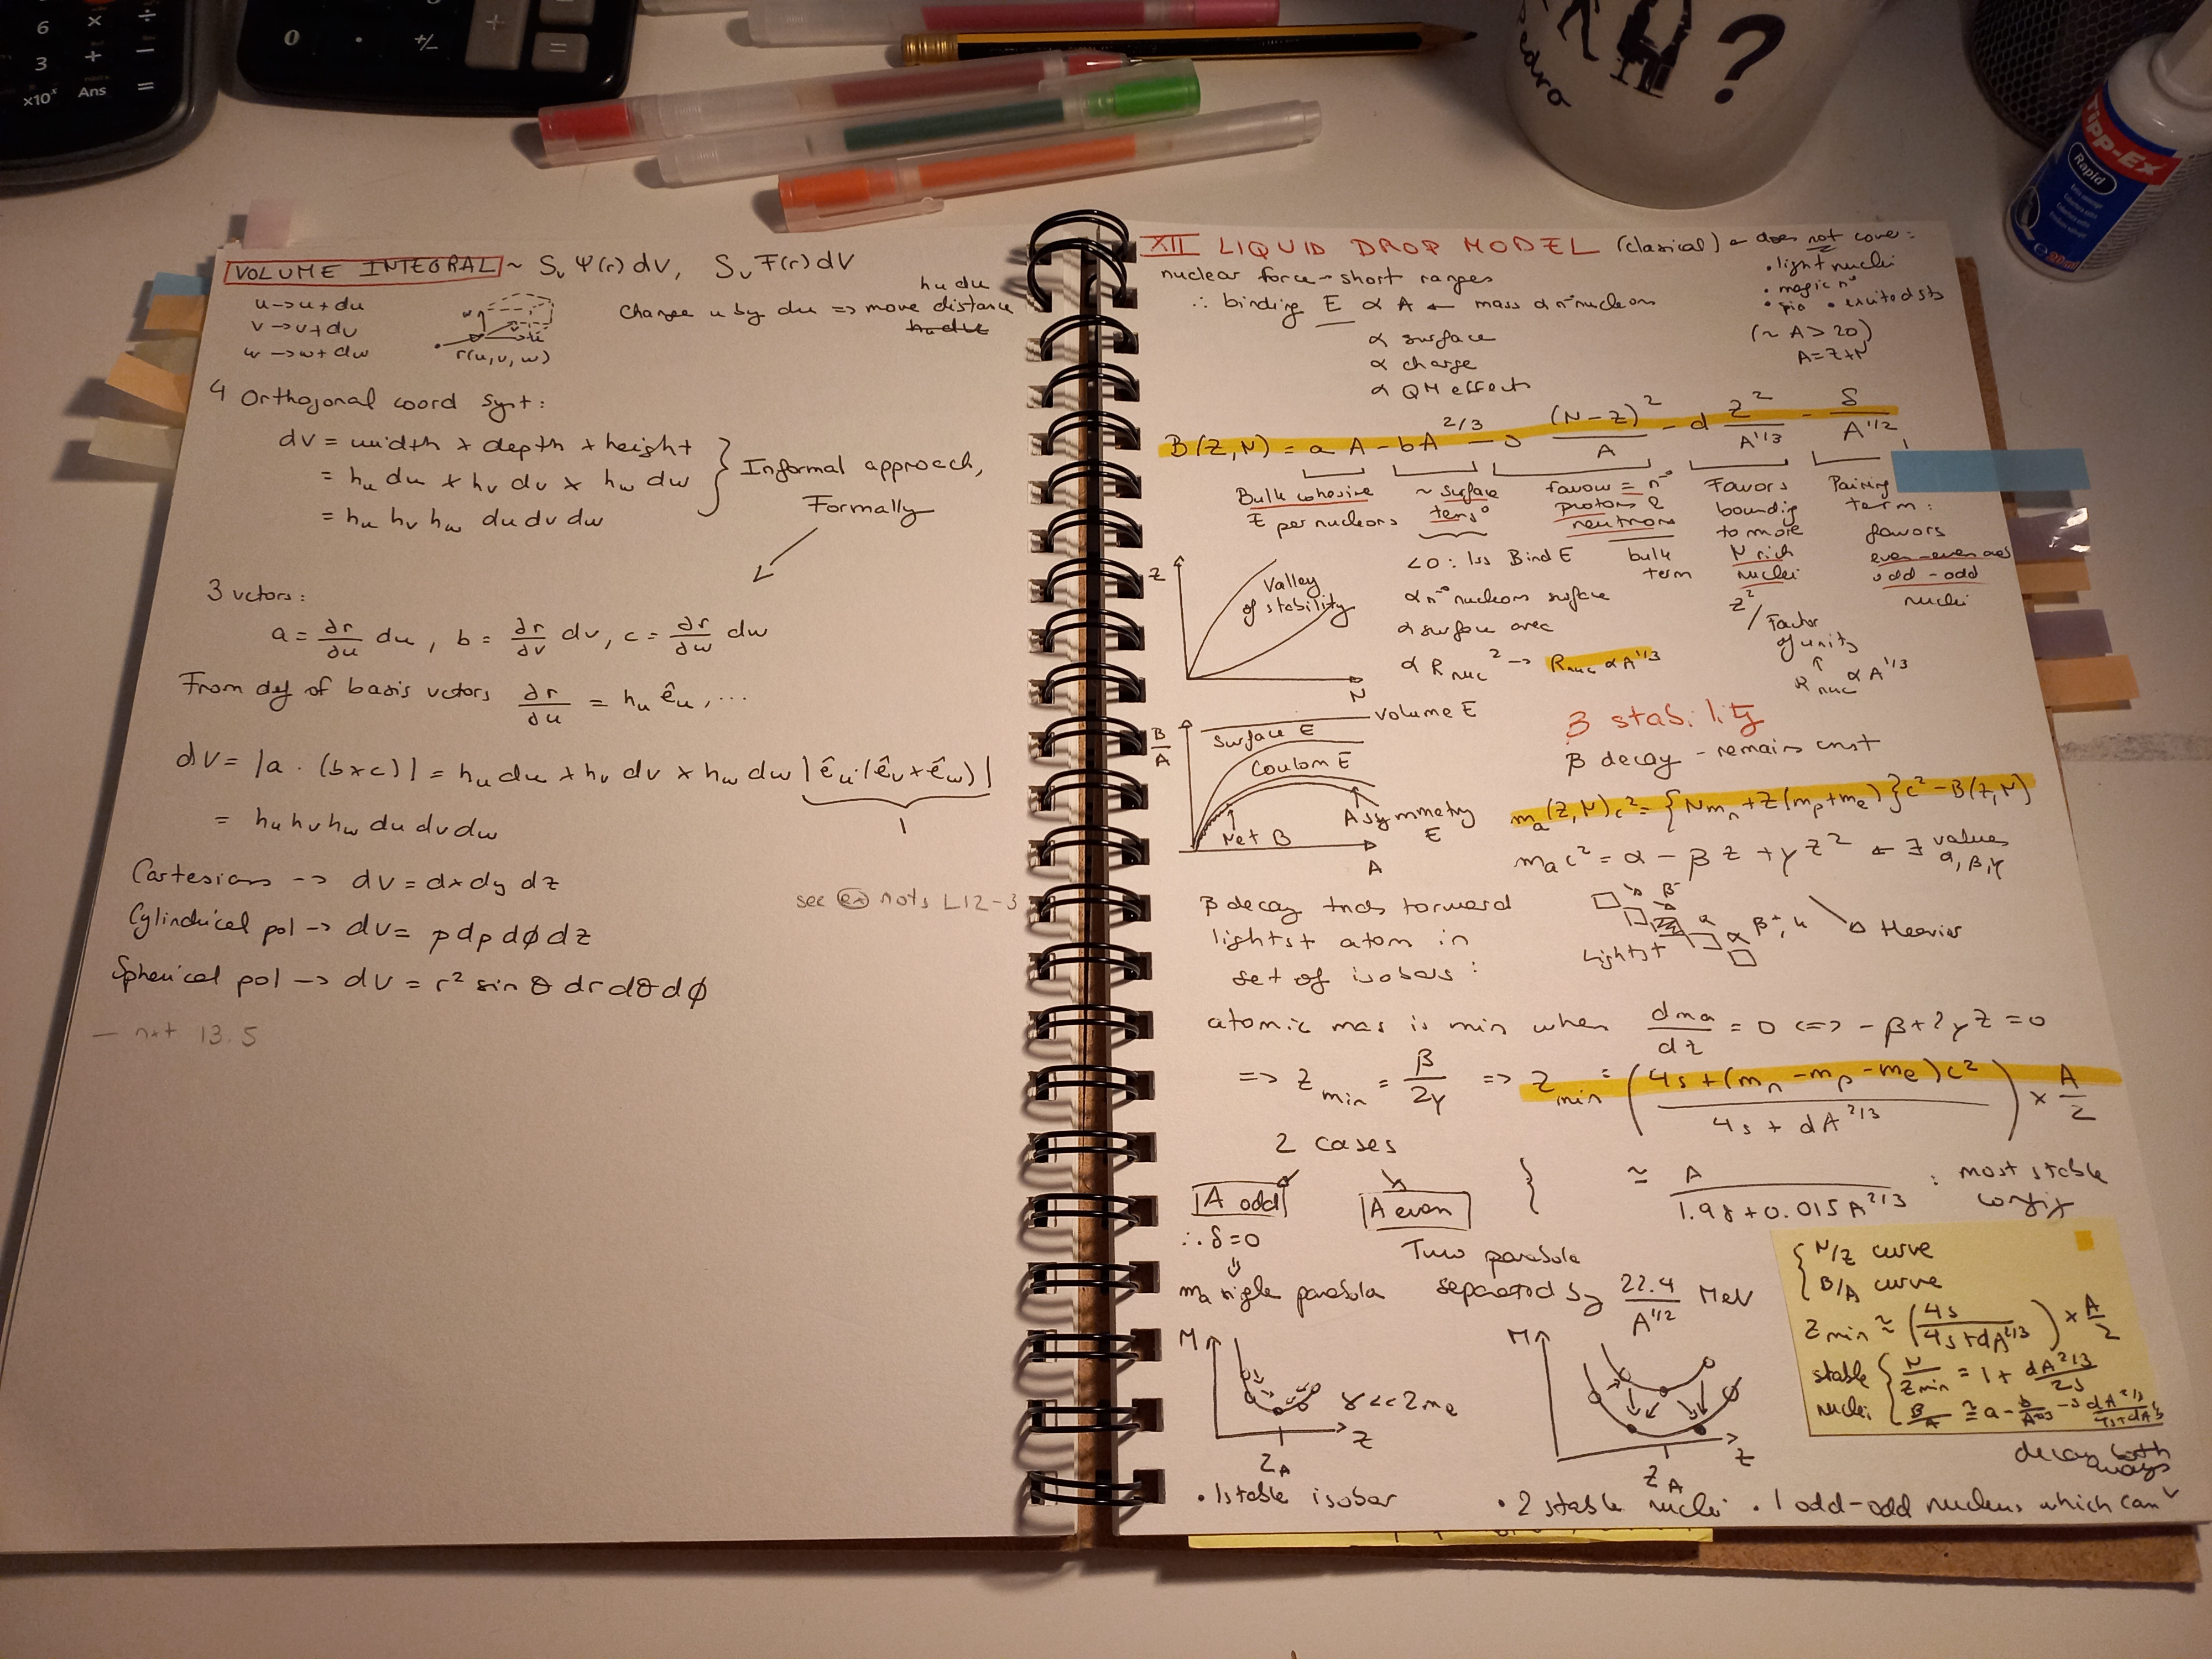 VOLUME INTEGRAL ~ S_v Ψ(r) dV, S_v F(r) dV
u → u + du
v → v + dv
w → w + dw
r(u,v,w)
Change u by du => move distance
hu du
4 Orthogonal coord syst:
dV = width × depth × height
= hu du × hv dv × hw dw
= hu hv hw du dv dw
} Informal approach,
Formally
3 vctors:
a = ∂r/∂u du, b = ∂r/∂v dv, c = ∂r/∂w dw
From def of basis vctors ∂r/∂u = hu êu, ...
dV = |a · (b×c)| = hu du × hv dv × hw dw |êu · (êv × êw)|
1
= hu hv hw du dv dw
Cartesians → dV = dx dy dz
Cylindrical pol → dV = ρ dρ dφ dz
Spherical pol → dV = r² sin θ dr dθ dφ
see ex nots L12-3
— nxt 13.5
XII LIQUID DROP MODEL (classical) ← does not cover:
• light nuclei
• magic nº
• spin • excitd sts
(~ A > 20)
A = Z + N
nuclear force ~ short ranges
∴ binding E α A ← mass α nº nucleons
α surface
α charge
α QM effects
B(Z,N) = aA - bA^2/3 - s (N-Z)²/A - d Z²/A^1/3 - δ/A^1/2
Bulk cohesive
E per nucleons
~ surface
tens°
favours = nº
protons &
neutrons
Favors
bounding
to more
N rich
nuclei
Pairing
term:
favors
even-even over
odd-odd
nuclei
<0: lss Bind E bulk term
α nº nucleons surface
α surface area
α R nuc² → Rnuc α A^1/3
Z² / Factor
of units
R nuc α A^1/3
Z
Valley
of stability
N
B/A
Volume E
Surface E
Coulom E
Assymmetry
E
Net B
A
β stability
β decay - remains const
ma(Z,N)c² = {Nmn + Z(mp+me)}c² - B(Z,N)
ma c² = α - βZ + γZ² ← ∃ values
α,β,γ
β decay tnds torward
lightst atom in
set of isobars:
β-
β+, κ
Heavier
lightst
atomic mas is min when dma/dZ = 0 <=> -β + 2γZ = 0
=> Zmin = β/2γ => Zmin = (4s + (mn - mp - me)c² / 4s + dA^2/3) × A/2
≈ A / 1.98 + 0.015A^2/3 : most stable
config
2 cases
A odd
∴ δ = 0
single parabola
M
ZA
Z
• 1 stable isobar
A even
Two parabola
separated by 22.4/A^1/2 MeV
M
ZA
Z
• 2 stable nuclei • 1 odd-odd nucleus which can
decay both
ways
{ N/Z curve
B/A curve
Zmin ≈ (4s / 4s+dA^2/3) × A/2
stable
nuclei
N/Zmin = 1 + dA^2/3 / 2s
6
×
÷
3
+
−
×10ˣ
Ans
=
0
·
+/-
+
=
Pedro
?
Tipp-Ex
Rapid
20 ml